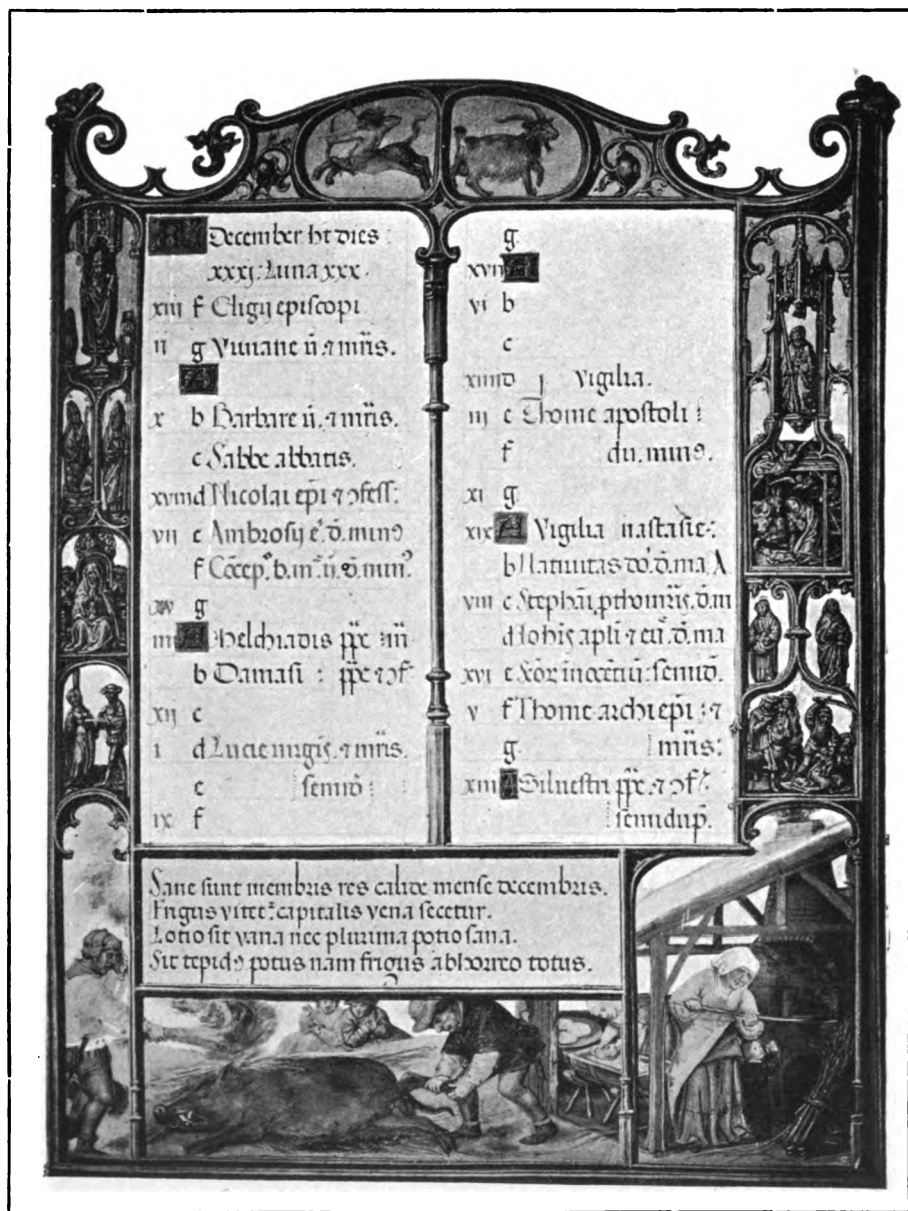 KL December ht dies :
xxxj : Luna xxx .
xiii f Eligij episcopi
ii g Viuiane ū. ⁊ mr̄is.
A
x b Barbare ū. ⁊ mr̄is.
c Sabbe abbatis.
xviii d Nicolai ep̄i ⁊ ɔfess:
vii e Ambrosij e. d. minꝰ
f Cōcep. b. m. ū. d. min.
xv g
iiii A Melchiadis pp̄e
b Damasi : pp̄e ⁊ ɔf
xij c
i d Lucie uirgīs. ⁊ mr̄is.
e semid :
ix f
g.
xvii A
vi b
c
xiiii d j Vigilia.
iii e Thome apostoli :
f du. minꝰ.
xi g
xix A Vigilia nastasie:
b Natiuitas d. ma
viii c Stephāi, d. m
d Iohis apl̄i ⁊ eū. d. ma
xvi e Scōꝝ inocētiū: semid.
v f Thome archiep̄i : ⁊
g. mr̄is:
xiii A Siluestri pp̄e. ⁊ ɔf
semidup̄.
Sane sunt membris res calide mense decembris.
Frigus vitet: capitalis vena secetur.
Lotio sit vana nec plurima potio sana.
Sit tepidꝰ potus nam frigus abhorreo totus.